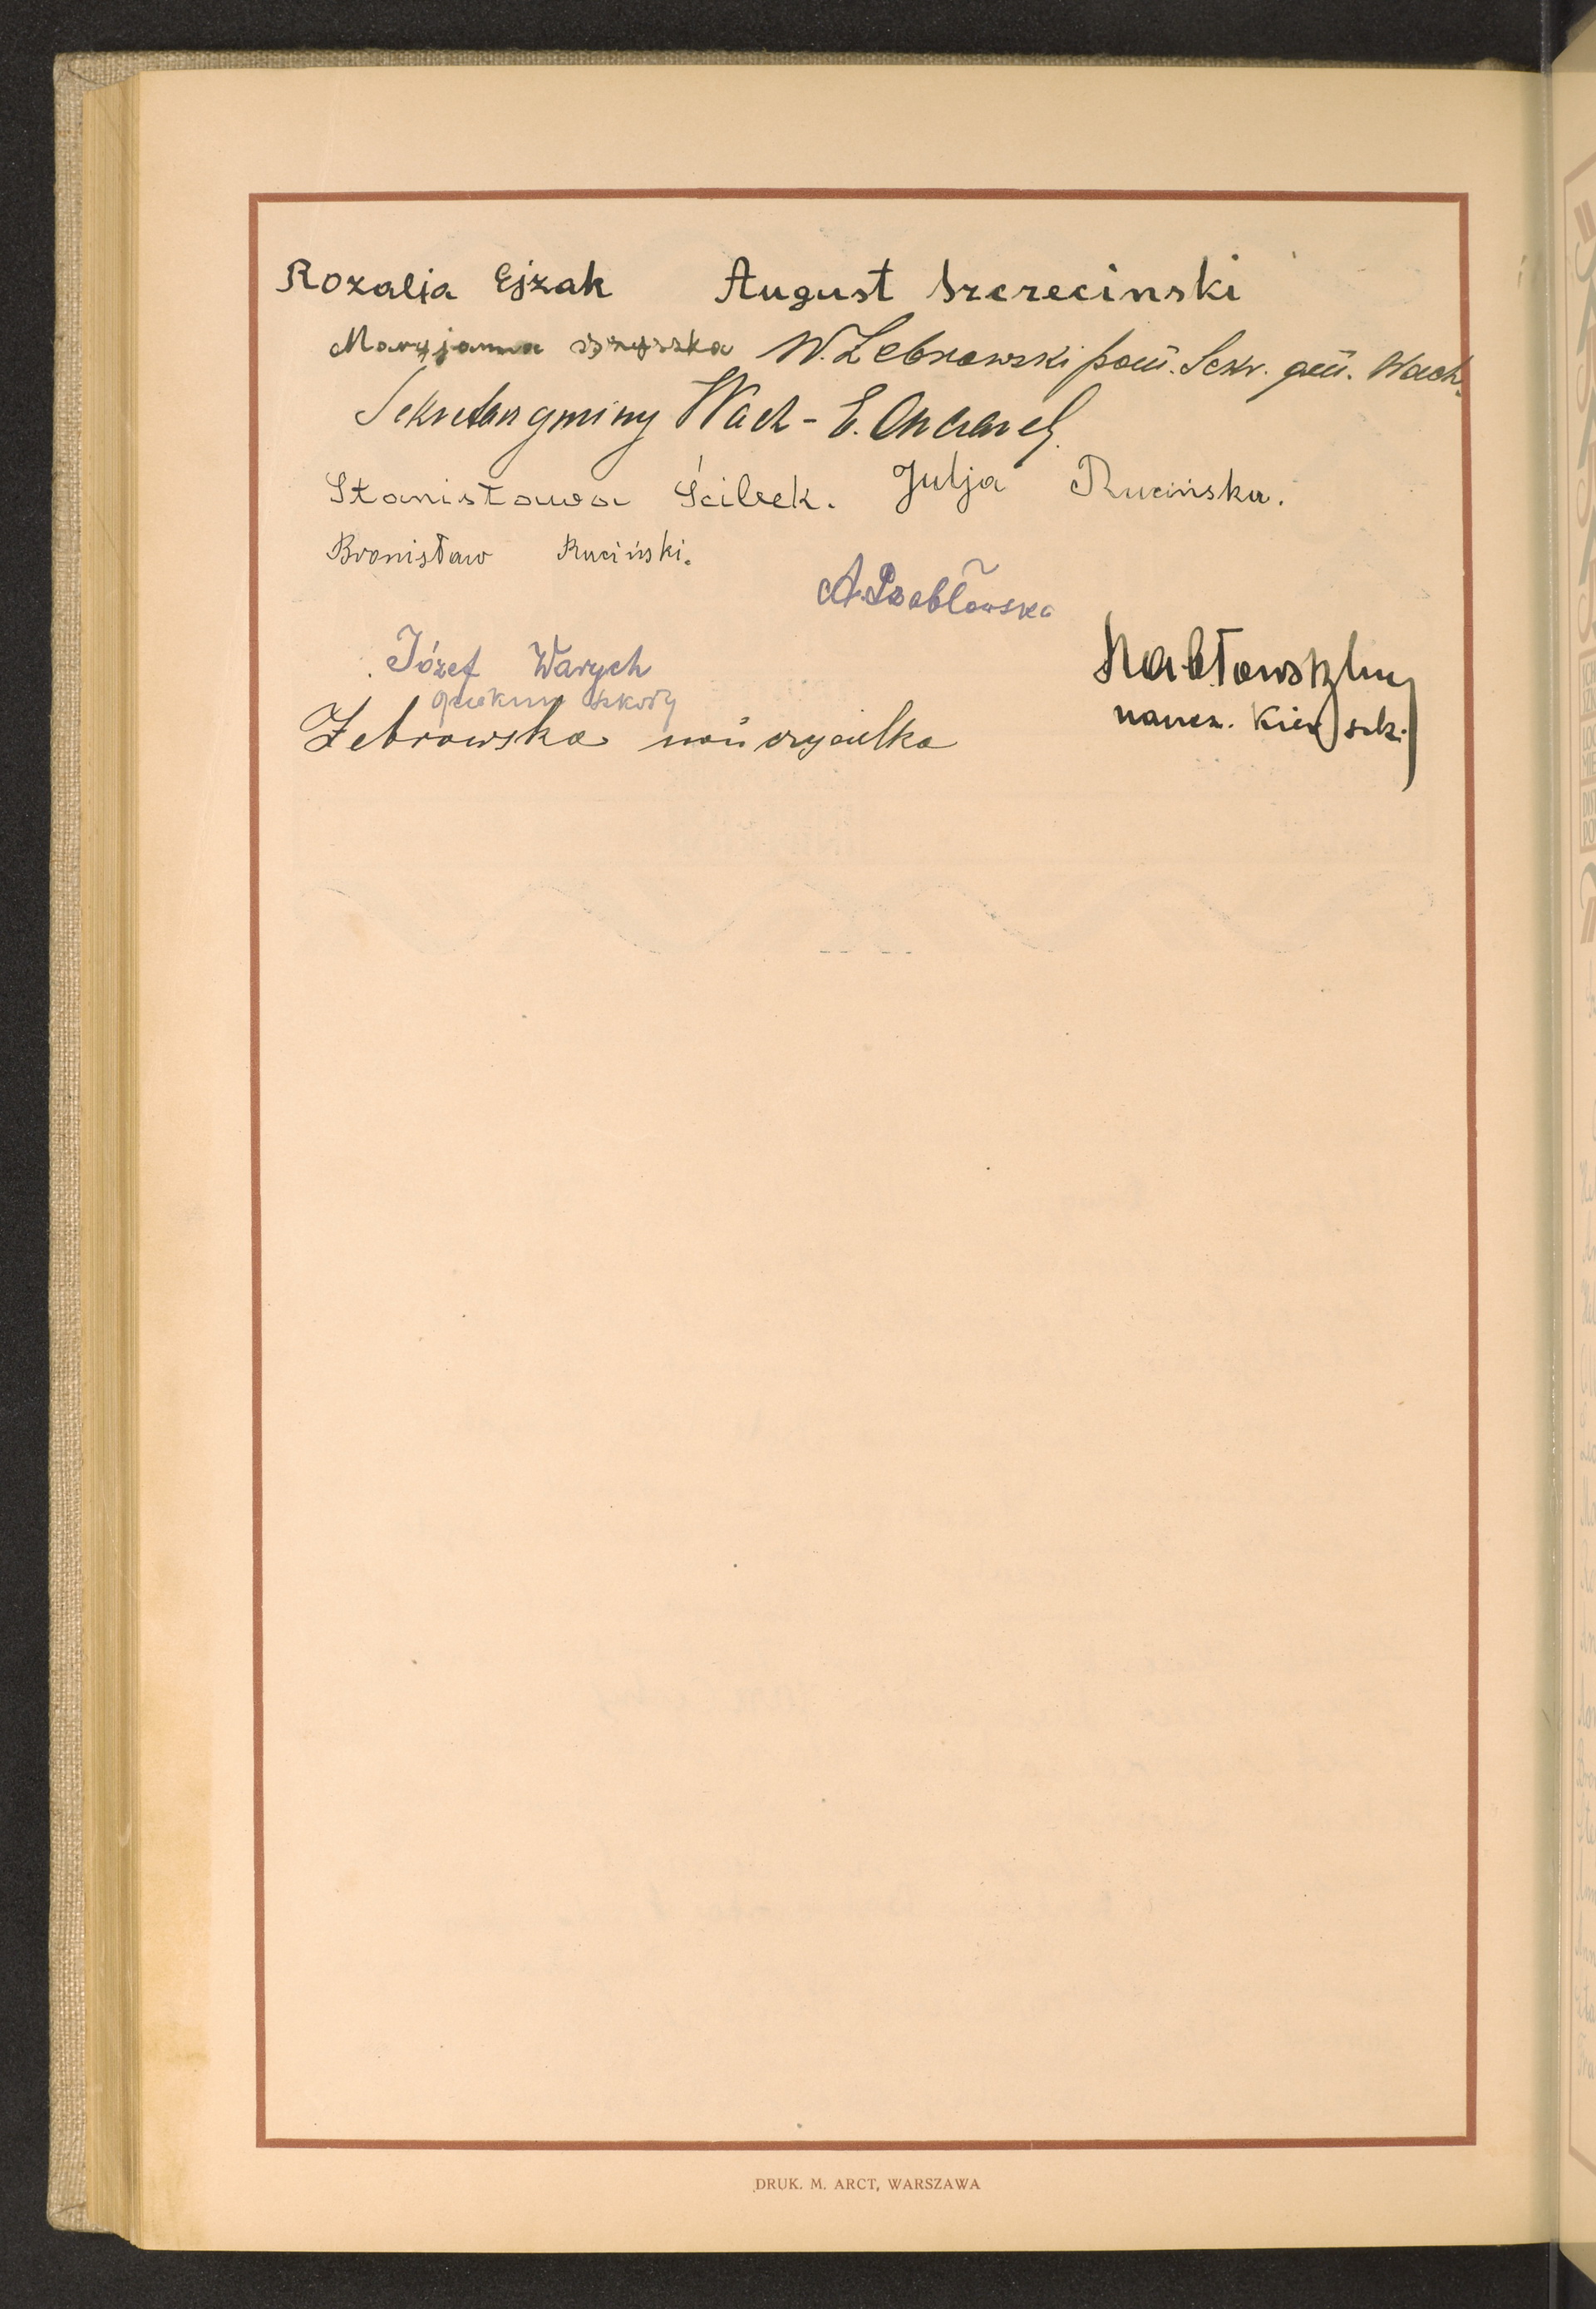 Rozalia Ejzak August Szczecinski
Maryjanna W. Żebrowski pom. Sekr. gm. Wach.
Sekretarz gminy Wach - E.
Stanisława Ścibek. Julja Rucińska.
Bronisław Ruciński.
Józef Warych
opiekun szkoły
naucz. Kier. szk.
Żebrowska nauczycielka
DRUK. M. ARCT, WARSZAWA